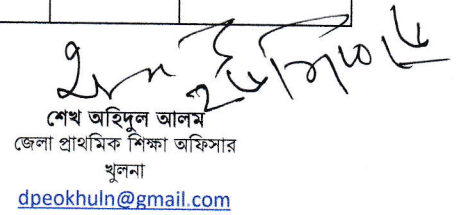 শেখ অহিদুল আলম
জেলা প্রাথমিক শিক্ষা অফিসার
খুলনা
dpeokhuln@gmail.com